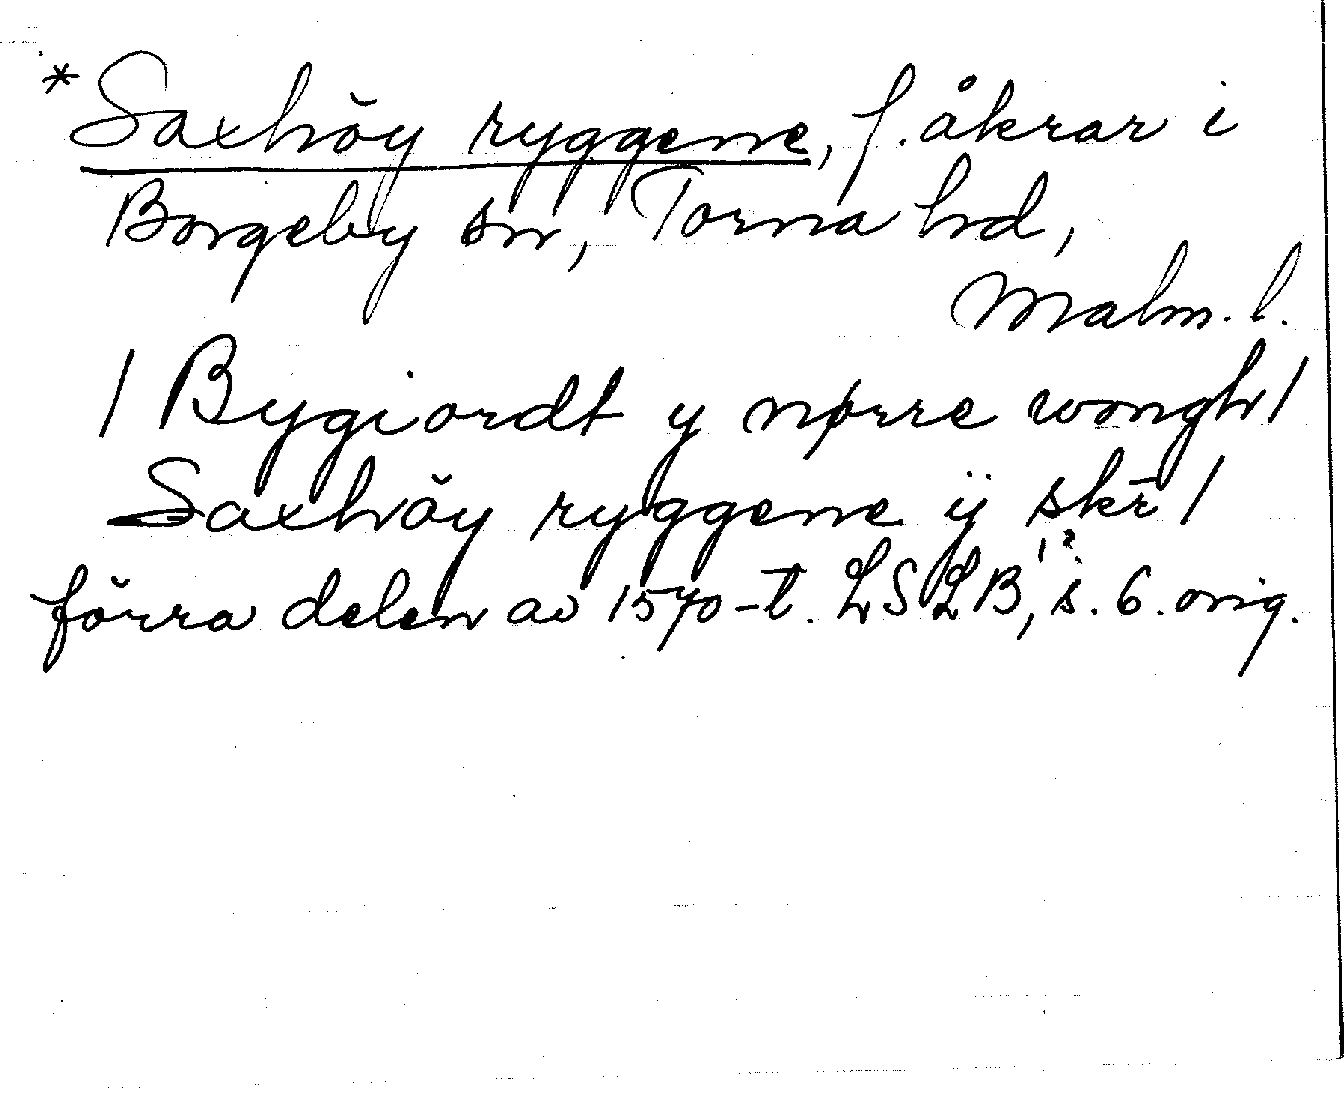 *Saxhöy ryggene, f. åkrar i
Borgeby sn, Torna hd,
Malm. l.
/ Bygiordt y nørre wongh /
Saxhöy ryggene ÿ skr̄ /
förra delen av 1570-t. LSLB, 1?, s. 6. orig.